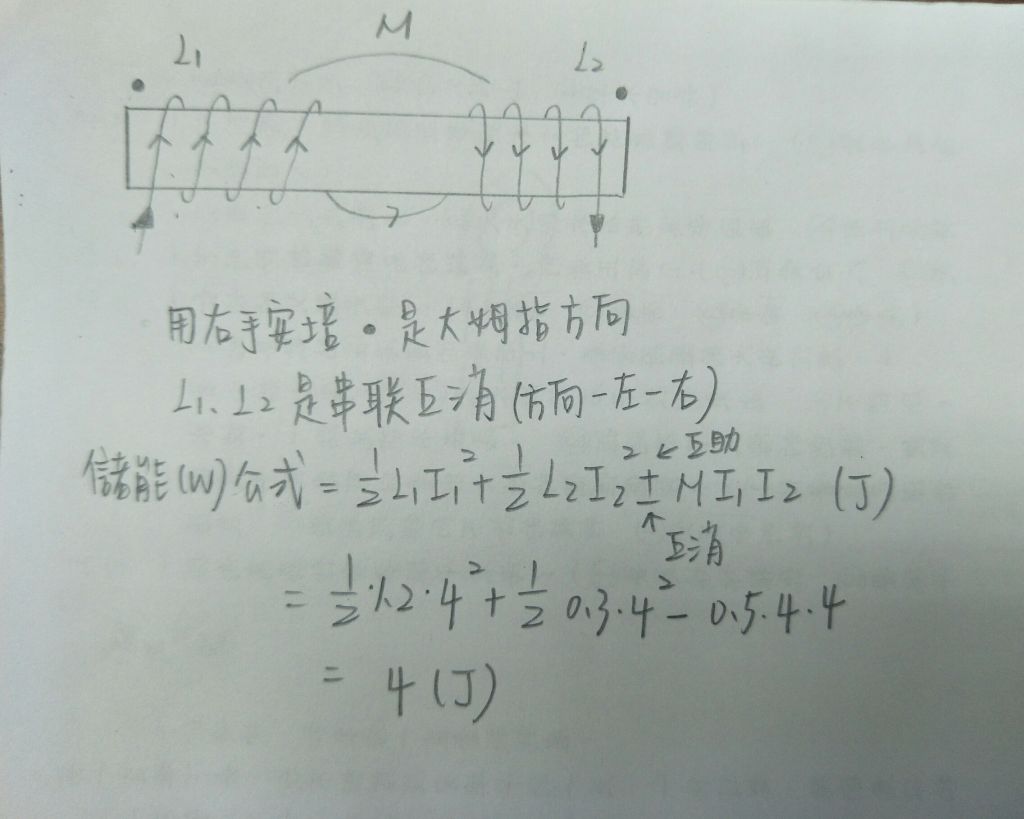 M
L₁ L₂
用右手安培•是大姆指方向
L₁、L₂是串联互消(方向一左一右)
儲能(W)公式 = ½L₁I₁² + ½L₂I₂² ± MI₁I₂ (J)
←互助
↑互消
= ½·1.2·4² + ½ 0.3·4² - 0.5·4·4
= 4(J)